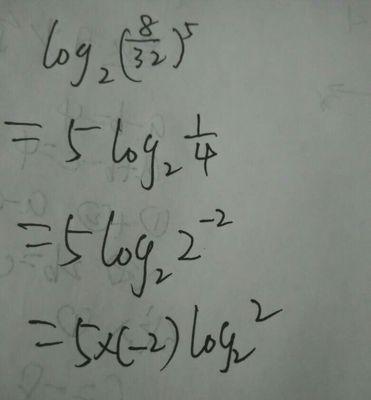 log₂(8/32)⁵
= 5 log₂ 1/4
= 5 log₂ 2⁻²
= 5×(-2) log₂ 2